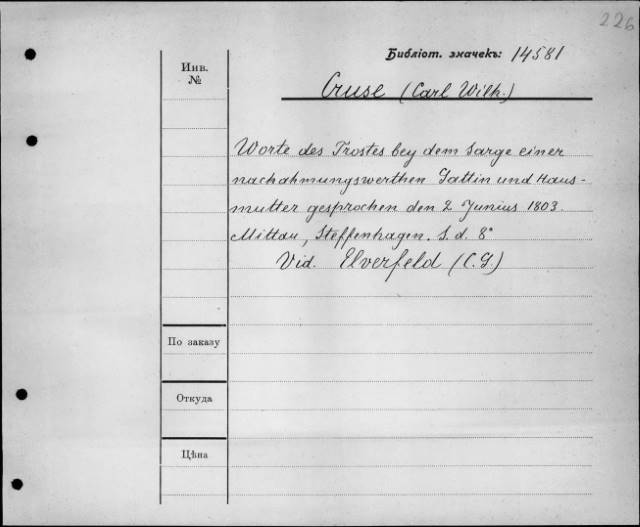 226
Библіот. значекъ: 14581
Инв.
№
Cruse (Carl Wilh.)
Worte des Trostes bey dem Sarge einer
nachahmungswerthen Gattin und Haus-
mutter gesprochen den 2 Junius 1803.
Mittau, Steffenhagen. S. d. 8°
Vid. Elverfeld (C. G.)
По заказу
Откуда
Цѣна